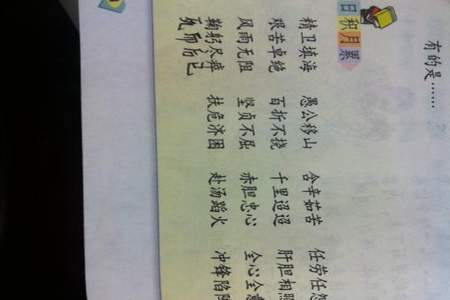 有的是……
日积月累
精卫填海 愚公移山 含辛茹苦 任劳任怨
艰苦卓绝 百折不挠 千里迢迢 肝胆相照
风雨无阻 坚贞不屈 赤胆忠心 全心全意
鞠躬尽瘁 扶危济困 赴汤蹈火 冲锋陷阵
死而后已